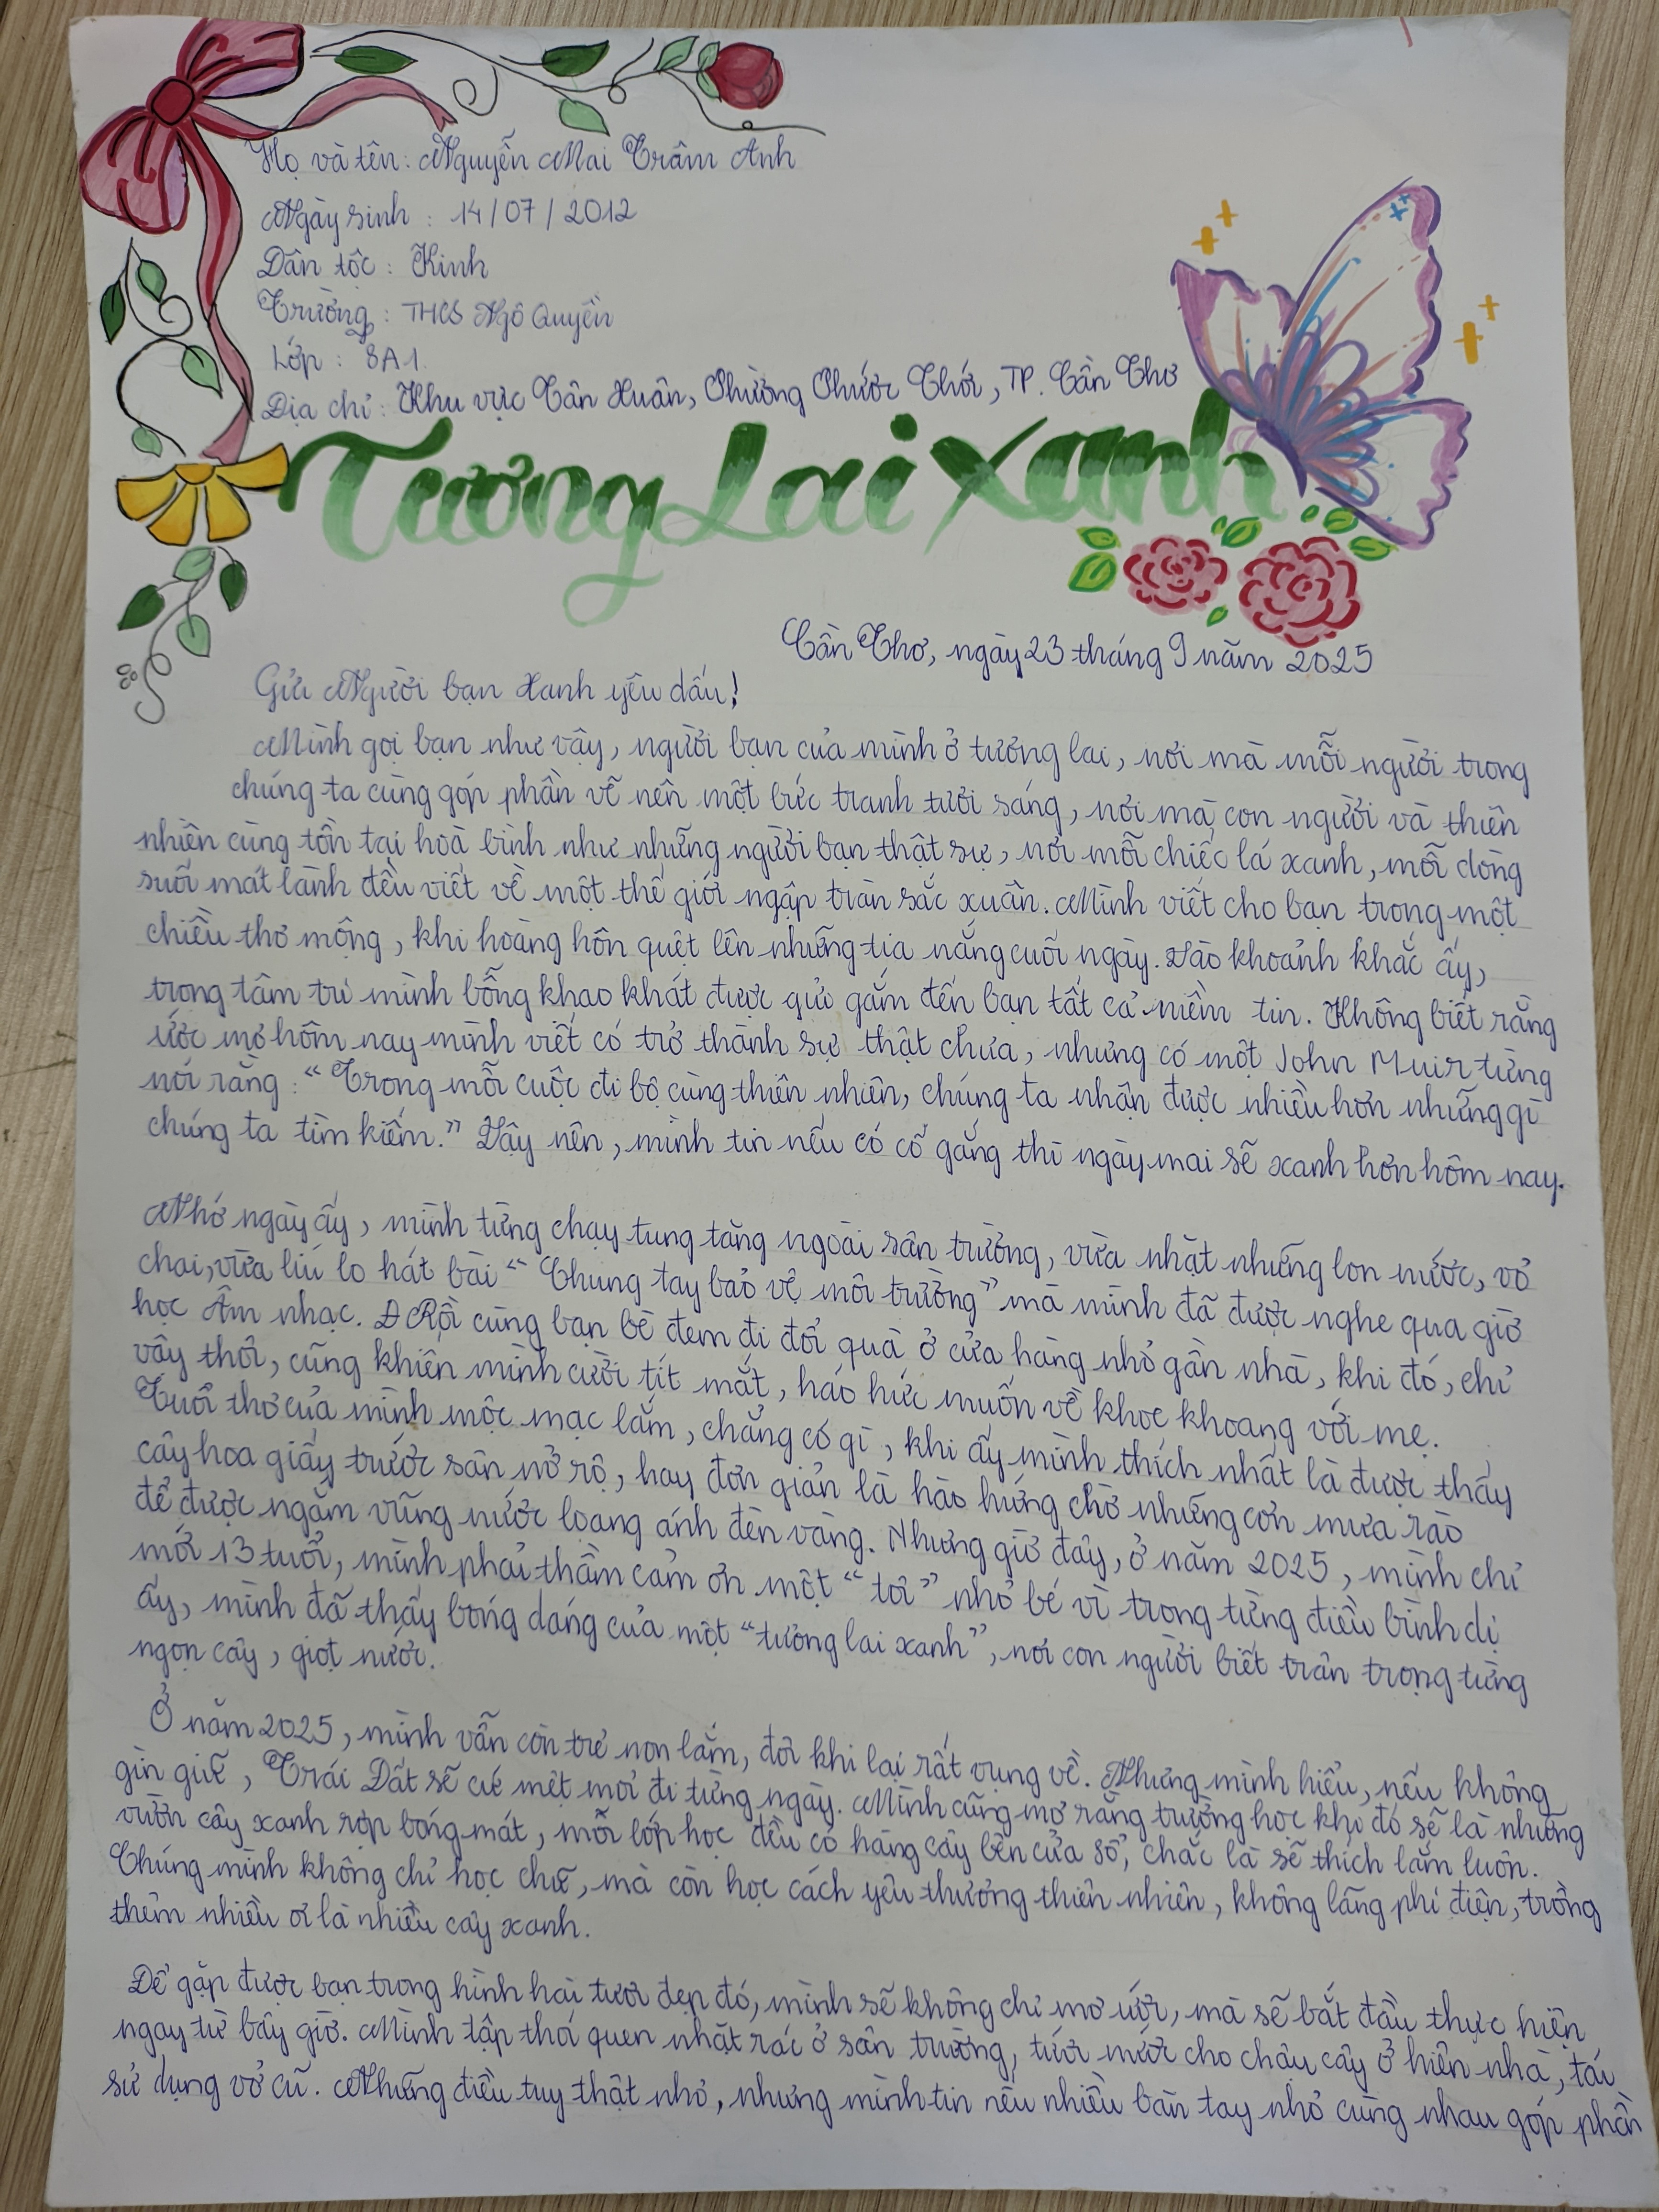 Họ và tên: Nguyễn Mai Trâm Anh
Ngày sinh : 14/07/2012
Dân tộc : Kinh
Trường : THCS Ngô Quyền
Lớp : 8A1.
Địa chỉ : Khu vực Tân Xuân, Phường Phước Thới, TP. Cần Thơ
Tương Lai Xanh
Cần Thơ, ngày 23 tháng 9 năm 2025
Gửi Người bạn Xanh yêu dấu!
Mình gọi bạn như vậy, người bạn của mình ở tương lai, nơi mà mỗi người trong
chúng ta cùng góp phần vẽ nên một bức tranh tươi sáng, nơi mà con người và thiên
nhiên cùng tồn tại hoà bình như những người bạn thật sự, nơi mỗi chiếc lá xanh, mỗi dòng
suối mát lành đều viết về một thế giới ngập tràn sắc xuân. Mình viết cho bạn trong một
chiều thơ mộng, khi hoàng hôn quệt lên những tia nắng cuối ngày. Vào khoảnh khắc ấy,
trong tâm trí mình bỗng khao khát được gửi gắm đến bạn tất cả niềm tin. Không biết rằng
ước mơ hôm nay mình viết có trở thành sự thật chưa, nhưng có một John Muir từng
nói rằng : “ Trong mỗi cuộc đi bộ cùng thiên nhiên, chúng ta nhận được nhiều hơn những gì
chúng ta tìm kiếm.” Vậy nên, mình tin nếu có cố gắng thì ngày mai sẽ xanh hơn hôm nay.
Nhớ ngày ấy, mình từng chạy tung tăng ngoài sân trường, vừa nhặt những lon nước, vỏ
chai, vừa líu lo hát bài “ Chung tay bảo vệ môi trường” mà mình đã được nghe qua giờ
học Âm nhạc. Rồi cùng bạn bè đem đi đổi quà ở cửa hàng nhỏ gần nhà, khi đó, chỉ
vậy thôi, cũng khiến mình cười tít mắt, háo hức muốn về khoe khoang với mẹ.
Tuổi thơ của mình mộc mạc lắm, chẳng có gì, khi ấy mình thích nhất là được thấy
cây hoa giấy trước sân nở rộ, hay đơn giản là hào hứng chờ những cơn mưa rào
để được ngắm vũng nước loang ánh đèn vàng. Nhưng giờ đây, ở năm 2025, mình chỉ
mới 13 tuổi, mình phải thầm cảm ơn một “ tôi” nhỏ bé vì trong từng điều bình dị
ấy, mình đã thấy bóng dáng của một “tương lai xanh”, nơi con người biết trân trọng từng
ngọn cây, giọt nước.
Ở năm 2025, mình vẫn còn trẻ non lắm, đôi khi lại rất vụng về. Nhưng mình hiểu, nếu không
gìn giữ, Trái Đất sẽ cứ mệt mỏi đi từng ngày. Mình cũng mơ rằng trường học khi đó sẽ là những
vườn cây xanh rợp bóng mát, mỗi lớp học đều có hàng cây bên cửa sổ, chắc là sẽ thích lắm luôn.
Chúng mình không chỉ học chữ, mà còn học cách yêu thương thiên nhiên, không lãng phí điện, trồng
thêm nhiều ơi là nhiều cây xanh.
Để gặp được bạn trong hình hài tươi đẹp đó, mình sẽ không chỉ mơ ước, mà sẽ bắt đầu thực hiện
ngay từ bây giờ. Mình tập thói quen nhặt rác ở sân trường, tưới nước cho chậu cây ở hiên nhà, tái
sử dụng vở cũ. Những điều tuy thật nhỏ, nhưng mình tin nếu nhiều bàn tay nhỏ cùng nhau góp phần